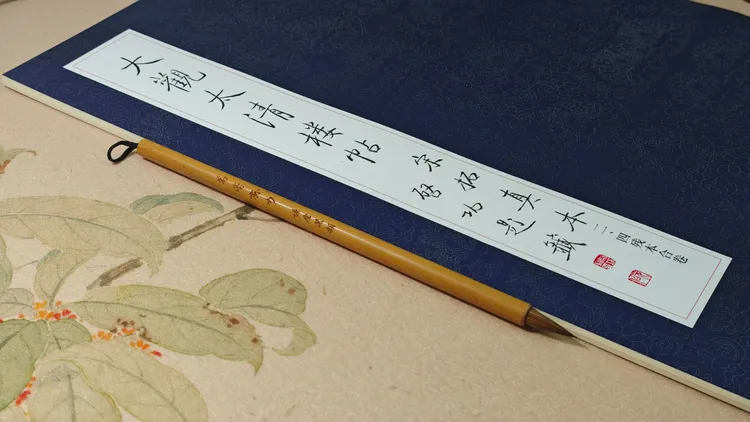 大觀太清樓帖
宋拓真本
啓功題籤
二、四残本合卷